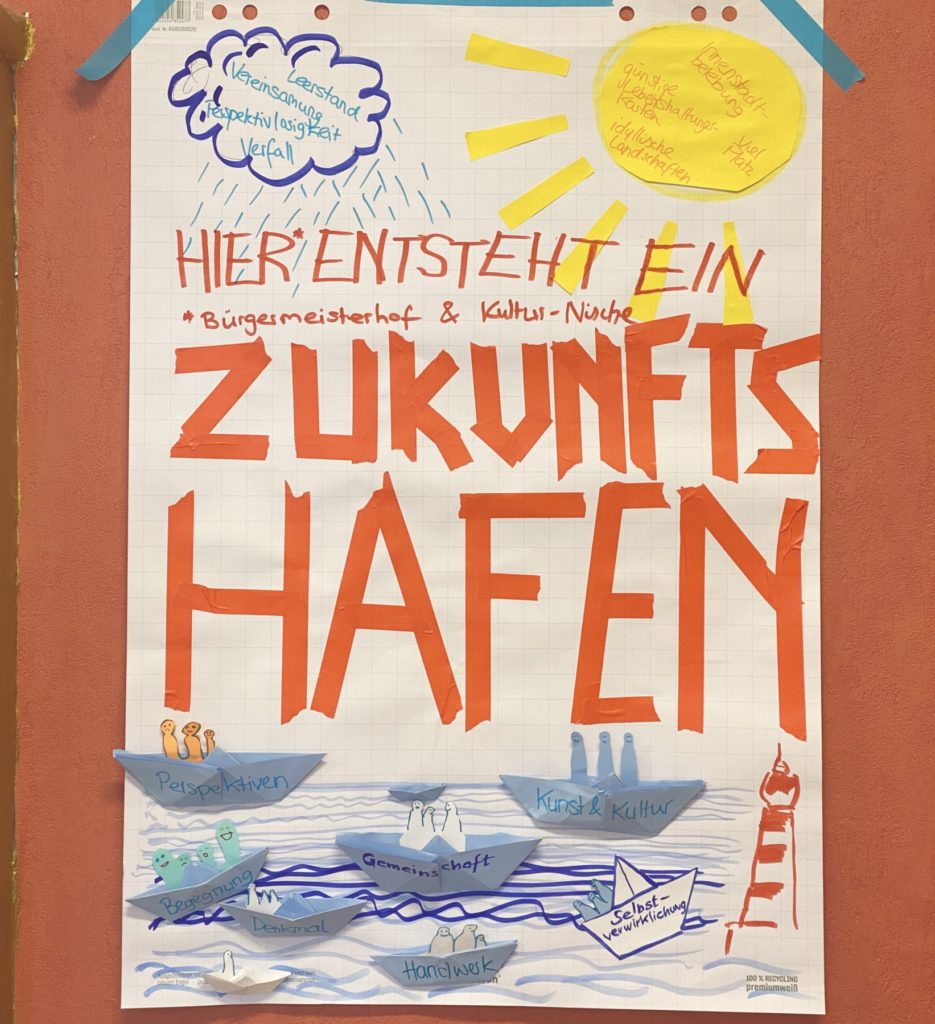 Leerstand
Vereinsamung
Perspektivlosigkeit
Verfall
Innenstadt-
belebung
günstige
Lebenshaltungs-
kosten
viel
Platz
idyllische
Landschaften
HIER* ENTSTEHT EIN
*Bürgermeisterhof & Kultur-Nische
ZUKUNFTS
HAFEN
Perspektiven
Kunst & Kultur
Gemeinschaft
Begegnung
Selbst-
verwirklichung
Denkmal
Handwerk
100 % RECYCLING
premiumweiß